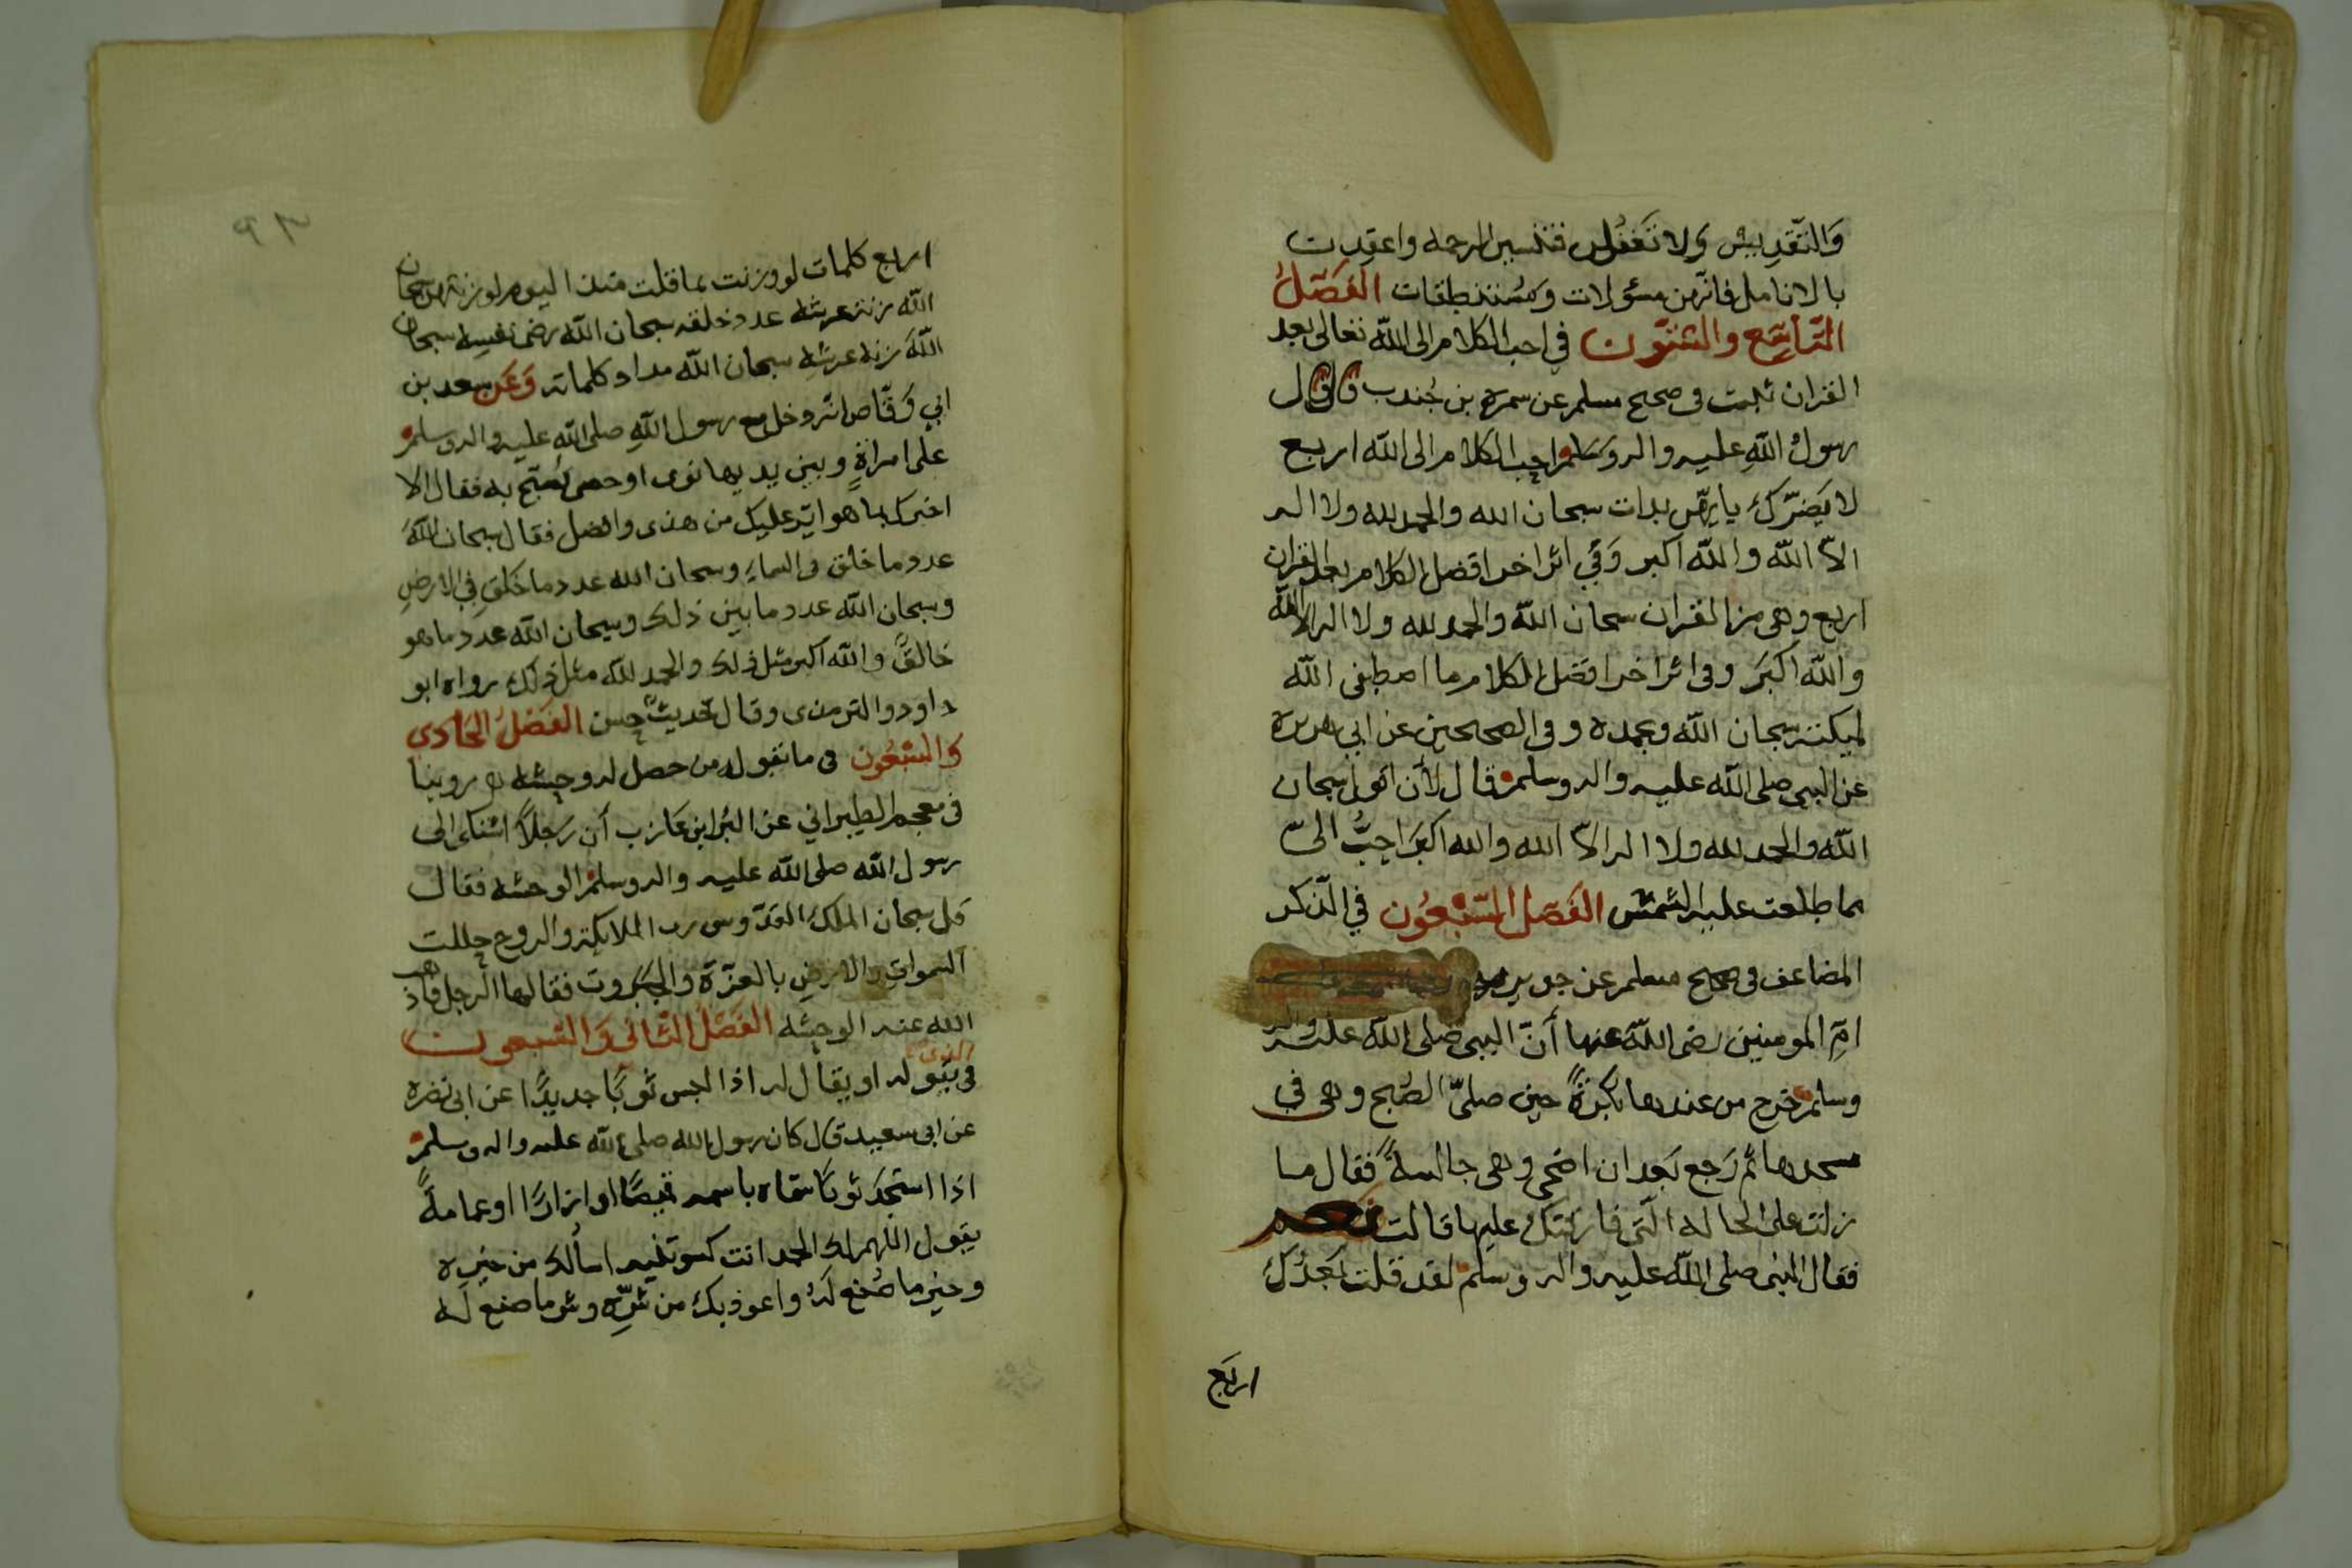 وَالتّقدِيسْ وَلا تَغفُلن فتنسين الرحمه واعقدت
بالانامل فانهن مسؤلات ومُستنطقات الفَصّلُ
التّاسِع والستّون في احب الكلام الى الله تعالى بعد
القران ثبت فى صحيح مسلم عن سمرة بن جُندب قال قال
رسولُ اللهِ عليه واله وسلم احب الكلام الى الله اربع
لا يَضرّكَ بايهّن بدات سبحان الله والحمد لله ولا اله
الاّ الله والله اكبر وَفي اثر اخر افضل الكلام بعد القران
اربع وهى من القران سبحان الله والحمد لله ولا اله الا الله
والله اكبَر وفى اثر اخر افضل الكلام ما اصطفى الله
لميكته سبحان الله وبحمده وفى الصحيحين عن ابي هريرة
عن النبى صلى الله عليه واله وسلم قال لأن اقول سبحان
الله والحمد لله ولا اله الاّ الله والله اكبَر احِبُّ الىّ
مما طلعت عليه الشمش الفَصل السّبعُون في الذكر
المضاعف فى صحيح مسلم عن جويريه
امّ المومنين رضى الله عنها أنّ النبى صلى الله عليه واله
وسلم خرج من عندها بُكرَةً حين صلىّ الصُبح وهى في
مسجدها ثم رَجع بَعد ان اضحى وهى جالسةً فقال ما
زلت على الحاله الّتى فارقتك عليها قالت نعم
فقال النبى صلى الله عليه واله وسلم لقد قلت بَعدَكِ
اربَع
٩٣
اربع كلمات لو وزنت بما قلت منذ اليوم لوزنتهن سبحان
الله زنة عرشه عدد خلقه سبحان الله رضى نفسِه سبحان
الله زنة عرشِه سبحان الله مداد كلماته وَعَن سعد بن
ابي وَقّاص انه دخل مع رسول اللهِ صلى الله عليه واله وسلم
على امراةٍ وبين يديها نوى او حصى تُسَبّح به فقال الا
اخبرك بما هو ايسر عليك من هذى وافضل فقال سبحان اللهَ
عدد ما خلق فى السماءِ وسبحان الله عدد ما خَلقَ فِي الارضِ
وسبحان الله عدد ما بين ذلك وسبحان الله عدد ما هو
خالقٌ والله اكبر مثل ذلك والحمد لله مثل ذلك رواه ابو
داود والترمذى وقال حَديثٌ حسن الفَصْلُ الحَادي
وَالسّبْعُون فى ما تقوله من حصل له وحشه روينا
فى معجم الطبراني عن البرا بن عَازب أن رَجلاً اشتكى الى
رسول الله صلى الله عليه واله وسلم الوحشه فقال
قل سبحان الملكِ القدّوس رب الملايكة والروح جللت
السموات والارضِ بالعزّة والجبَروت فقالها الرجل فاذهب
الله عنه الوحشه الفَصْلُ الثّاني وَالسّبعون
فى يَقوله او يقال له اذا لبس ثوبًا جديدًا عن ابى نضره
عن ابى سعيد قال كان رسول الله صلى الله عليه واله وسلم
اذا استجَدّ ثوبًا سمّاه باسمه قيصًا او ازارًا او عمامةً
يقول اللهم لك الحمد انت كسوتنيه اسالك من خيره
وخير ما صُنع لَهُ واعوذ بك من شرِّه وشر ما صنع لَه